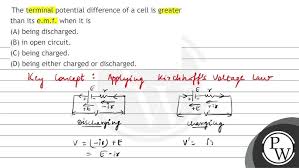 The terminal potential difference of a cell is greater
than its e.m.f. when it is
(A) being discharged.
(B) in open circuit.
(C) being charged.
(D) being either charged or discharged.
Key Concept : Applying Kirchhoff's Voltage Law
E r
+ -
+E -ir
Discharging
V = (-ir) + E
= E - ir
E r
Charging
V' =
PW